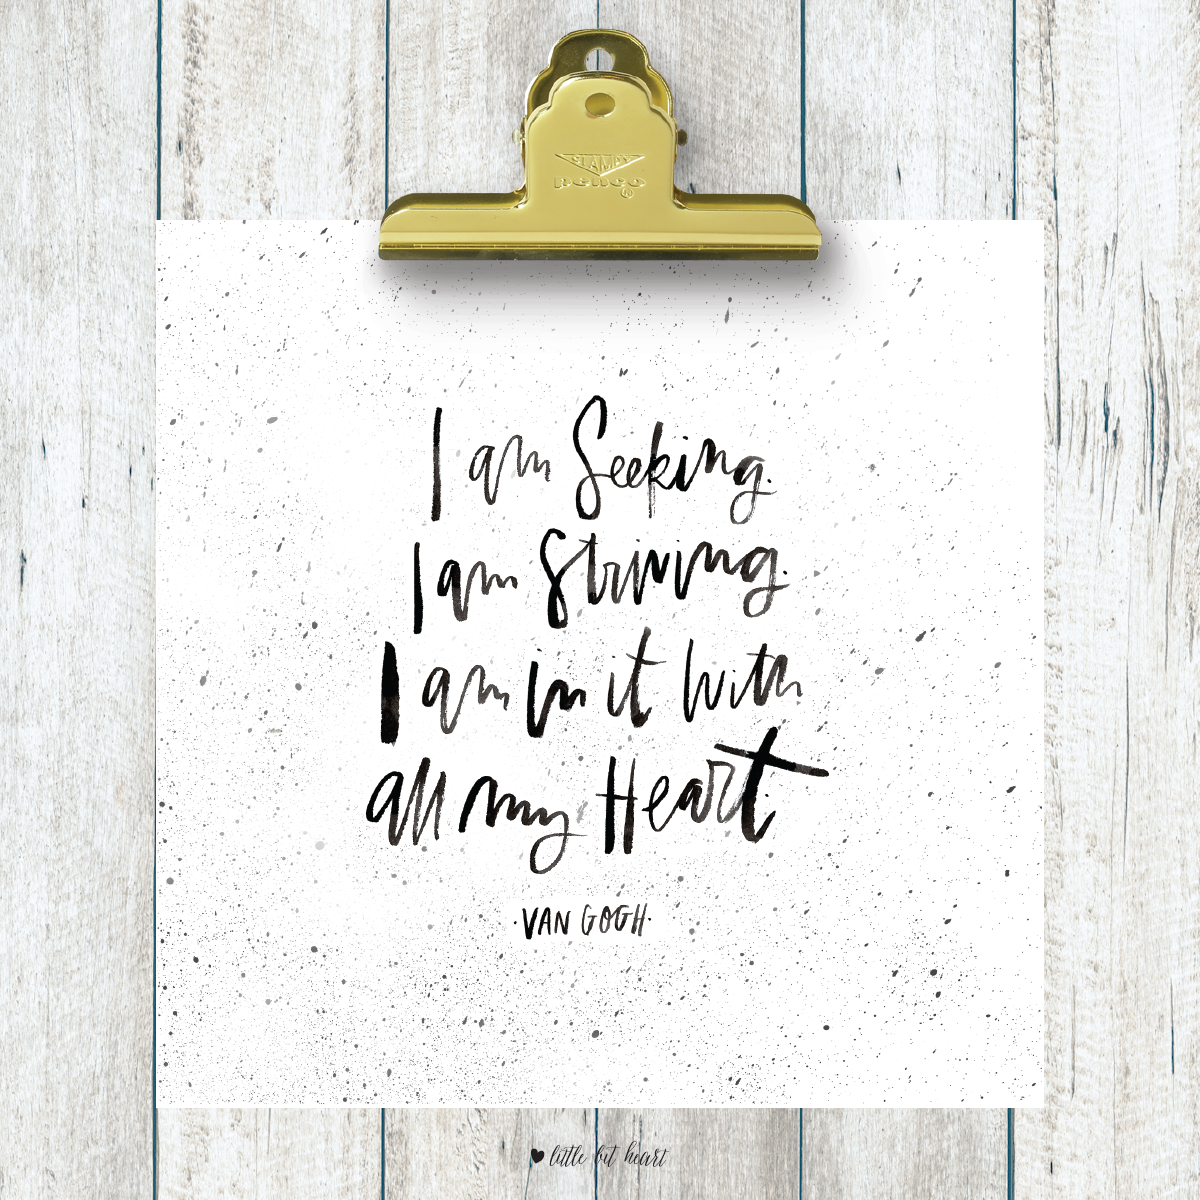 CLAMPY
penco
®
I am Seeking.
I am Striving.
I am in it with
all my Heart.
·VAN GOGH·
little bit heart